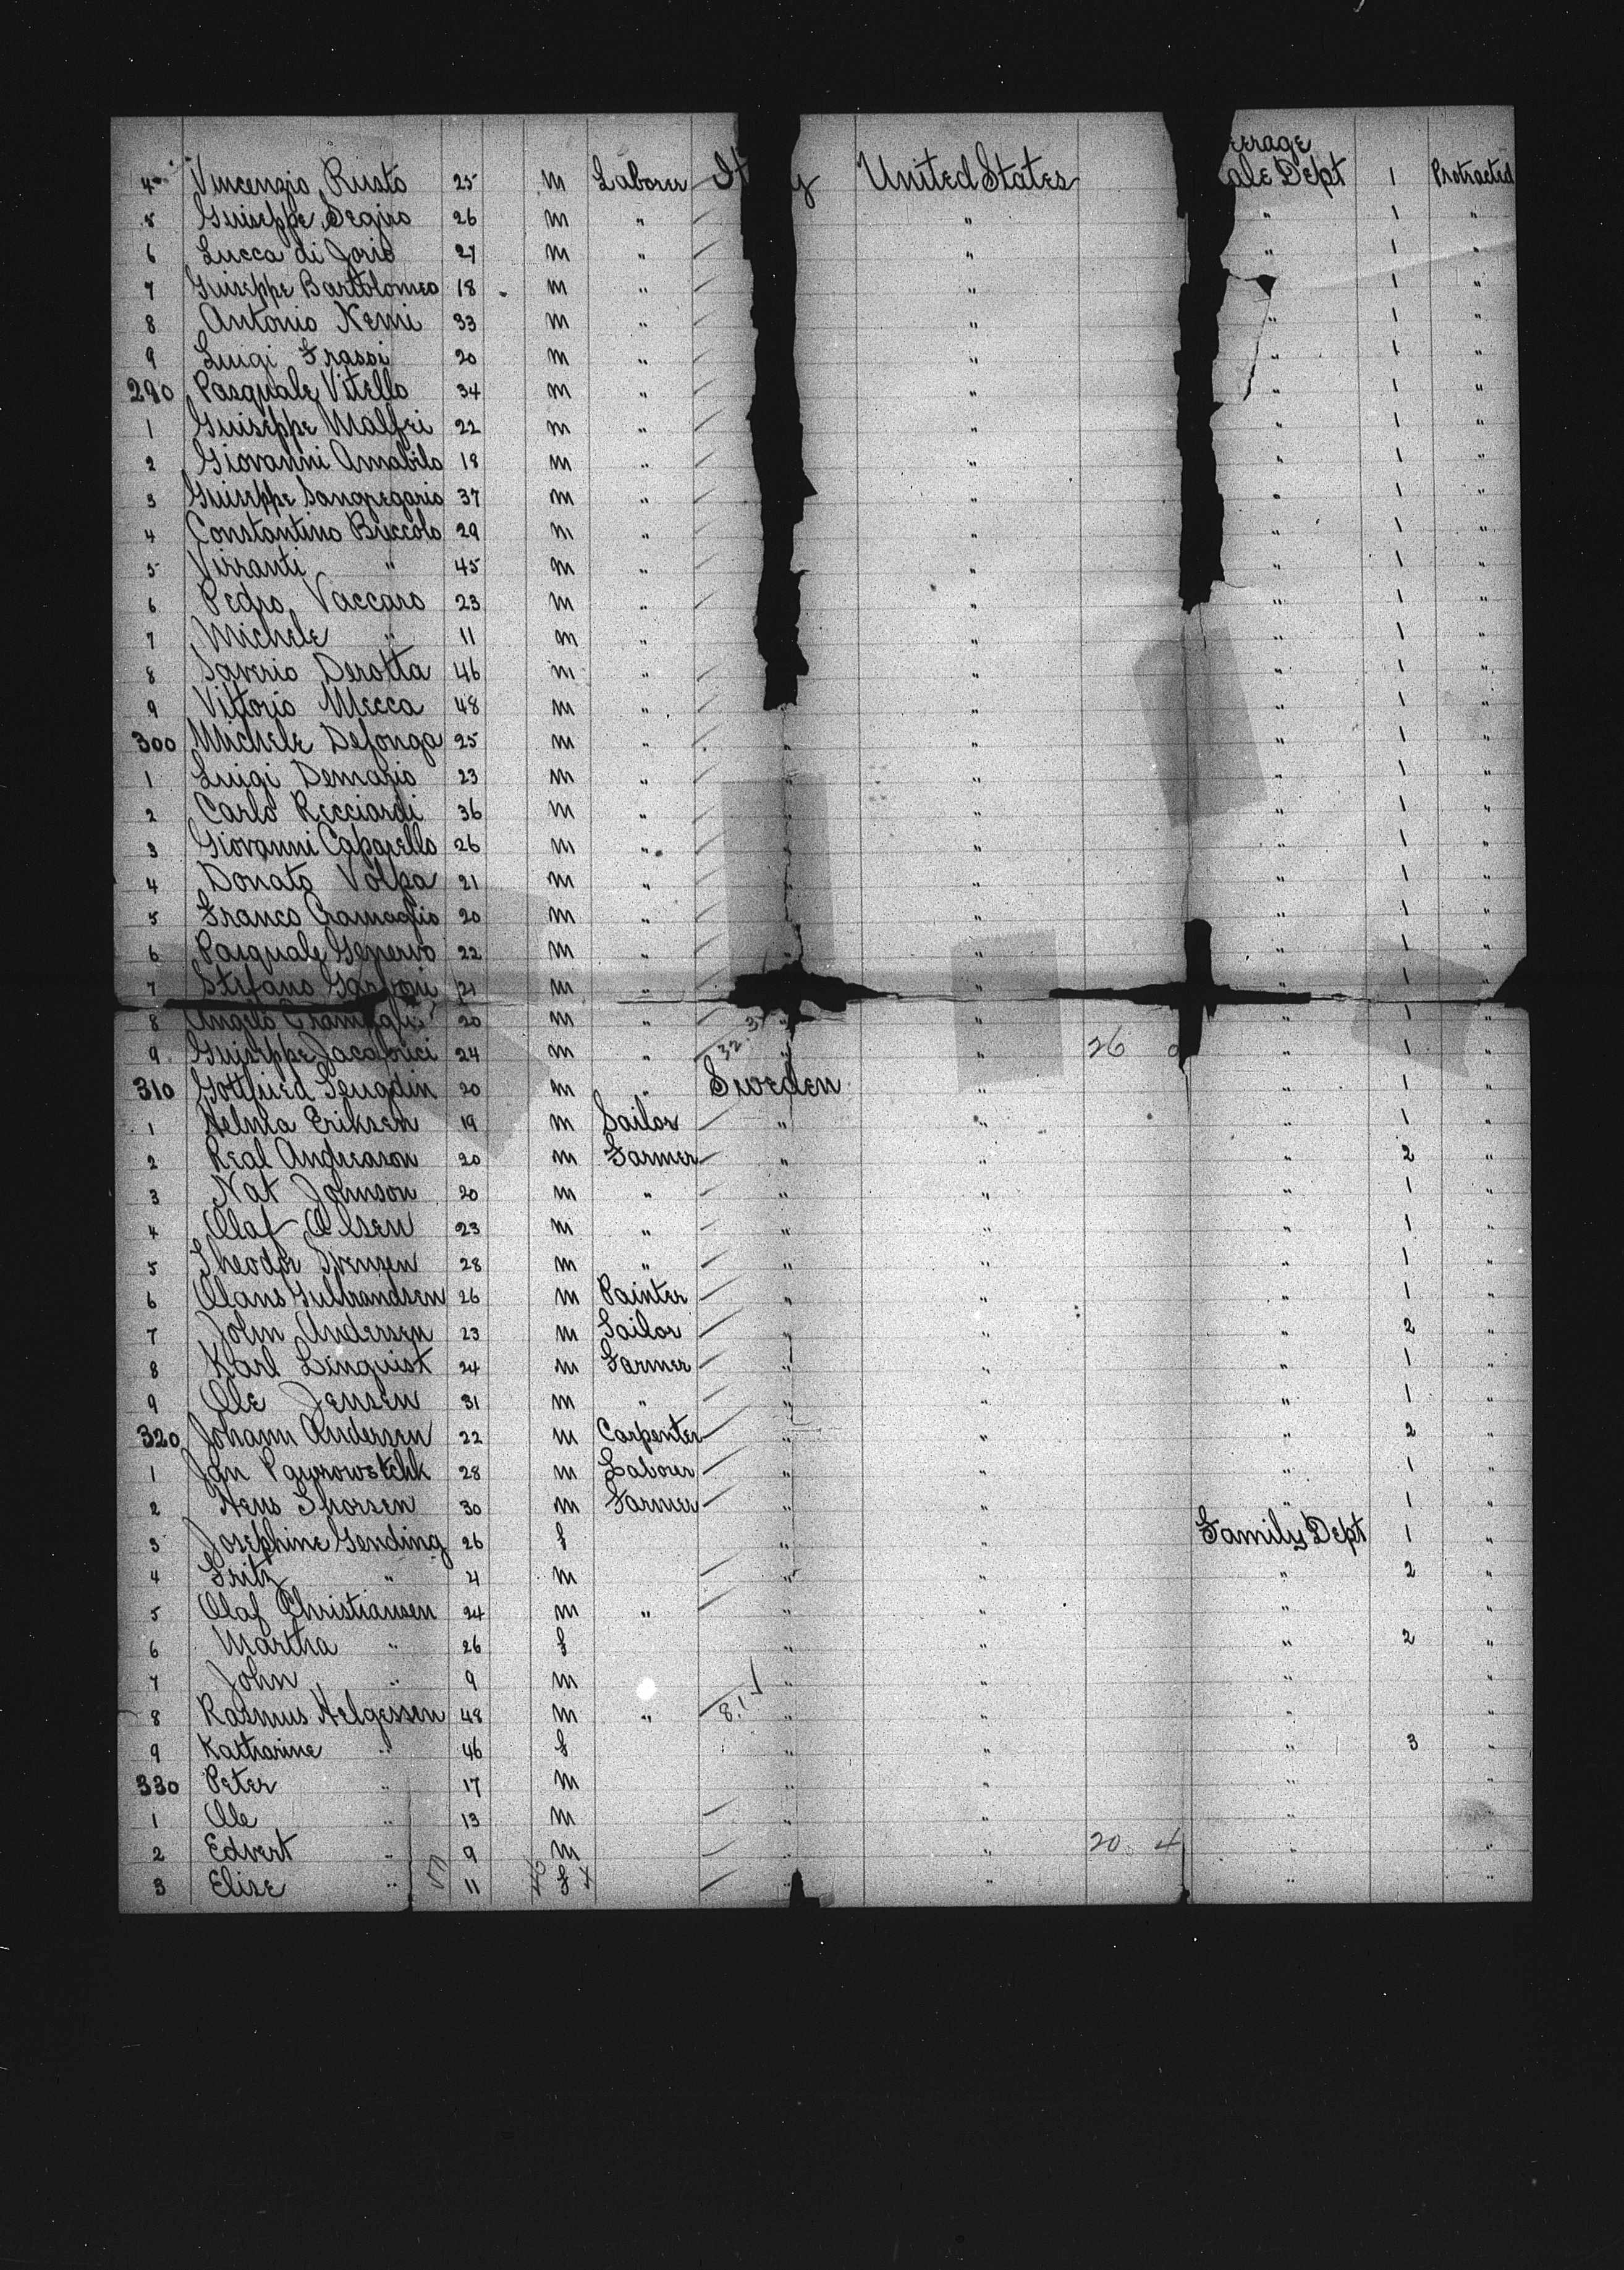 eerage
4 Vincenzo Rusto 25 m Laborer It y United States ale Dept 1 Protracted
5 Guiseppe Degiro 26 m " " " 1 "
6 Lucca di Jorio 27 m " " " 1 "
7 Guiseppe Bartolomeo 18 m " " 1 "
8 Antonio Nemi 33 m " " " 1 "
9 Luigi Frassi 20 m " " " 1 "
290 Pasquale Vitello 34 m " " " 1 "
1 Guiseppe Malfei 22 m " " " 1 "
2 Giovanni Amabilo 18 m " " " 1 "
3 Guiseppe Sangregorio 37 m " " " 1 "
4 Constantino Buccolo 29 m " " " 1 "
5 Visranti " 45 m " " " 1 "
6 Pedro Vaccaro 23 m " " " 1 "
7 Michele " 11 m " " " 1 "
8 Saverio Derotta 46 m " " " 1 "
9 Vittorio Mecca 48 m " " " 1 "
300 Michele Defonga 25 m " " " " 1 "
1 Luigi Demario 23 m " " " " 1 "
2 Carlo Recciardi 36 m " " " " 1 "
3 Giovanni Caparello 26 m " " " " 1 "
4 Donato Volpa 21 m " " " " 1 "
5 Franco Cramaglio 20 m " " " " 1 "
6 Pasquale Genervo 22 m " " " " 1 "
7 Stefano 21 m " " " 1 "
8 Angelo 20 m " " " " 1 "
9 Guiseppe Jacabuci 24 m " 32. 3 " " 26 0 " 1 "
310 Gottfried Leugdin 20 m " Sweden " " 1 "
1 Helma Eriksen 19 m Sailor " " " 1 "
2 Real Andreason 20 m Farmer " " " 2 "
3 Nat Johnson 20 m " " " " 1 "
4 Olaf Olsen 23 m " " " " 1 "
5 Theodor Svensen 28 m " " " " 1 "
6 Olans Gulbrandsen 26 m Painter " " " 1 "
7 John Andersen 23 m Sailor " " " 2 "
8 Karl Linquist 24 m Farmer " " " 1 "
9 Ole Jensen 31 m " " " " 1 "
320 Johann Andersen 22 m Carpenter " " " 2 "
1 Jan Pawrowstchk 28 m Laborer " " " 1 "
2 Hens Thorsen 30 m Farmer " " " 1 "
3 Josephine Gending 26 f " " Family Dept 1 "
4 Fritz " 4 m " " " 2 "
5 Olaf Christiansen 24 m " " " " "
6 Martha " 26 f " " " 2 "
7 John " 9 m " " " "
8 Rasmus Helgessen 48 m " 8.1 " " " "
9 Katharine " 46 f " " " 3 "
330 Peter " 17 m " " " "
1 Ole " 13 m " " " "
2 Edvert " 9 m " " 20 4 " "
3 Elise " 11 f " " " "